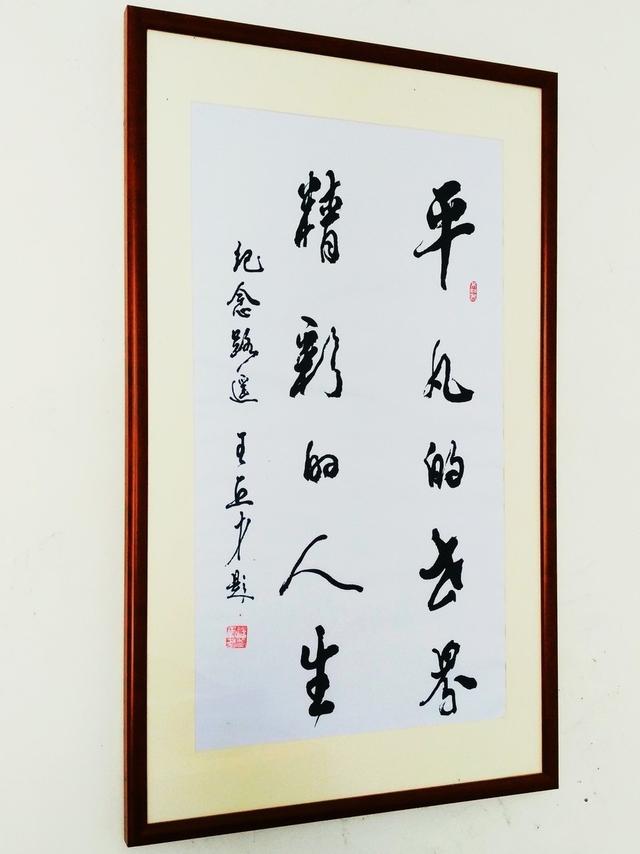 平凡的世界
精彩的人生
纪念路遥 王巨才题